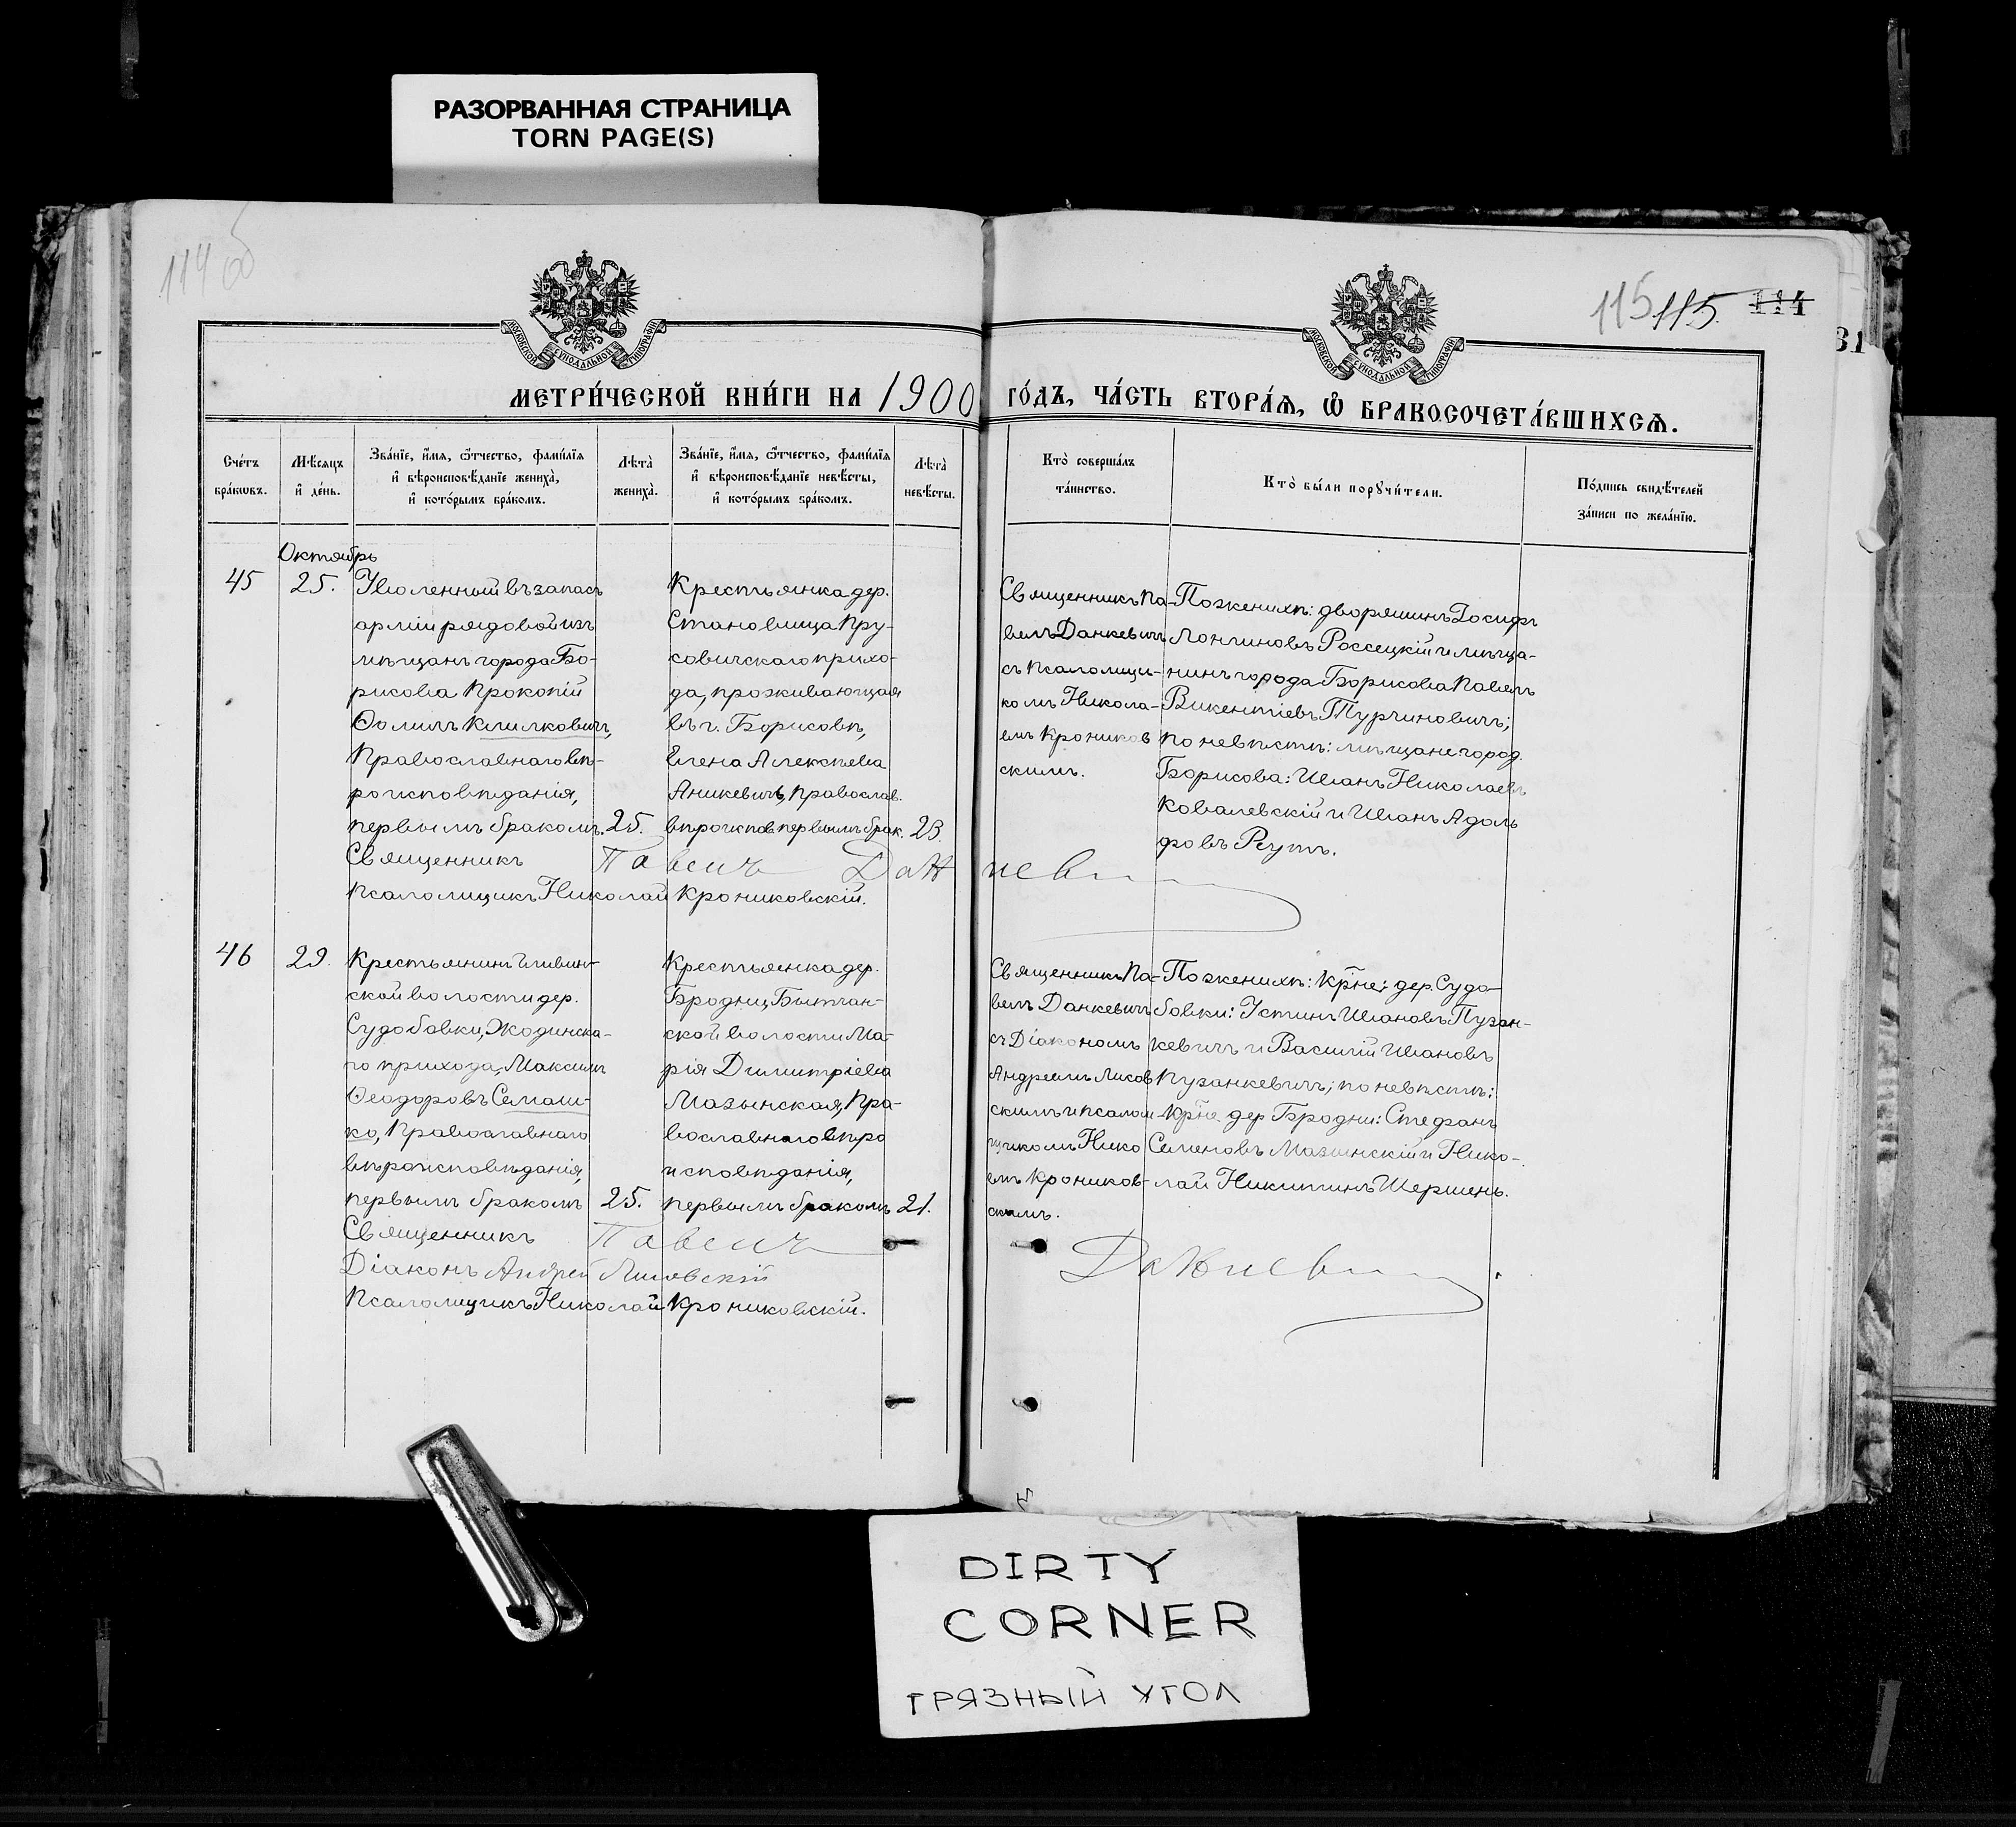 РАЗОРВАННАЯ СТРАНИЦА
TORN PAGE(S)
114 об
115 115. 114
31
МОСКОВСКОЙ СѴНОДАЛЬНОЙ ТИПОГРАФІИ
МОСКОВСКОЙ СѴНОДАЛЬНОЙ ТИПОГРАФІИ
МЕТРИ́ЧЕСКОЙ КНИ́ГИ НА 1900 ГО́ДЪ, ЧА́СТЬ ВТОРА́Ѧ, Ѽ БРАКОСОЧЕТА́ВШИХСѦ.
Сче́тъ
бра́кωвъ.
Мѣ́сяцъ
и҆ де́нь.
Зва́нїе, и҆́мя, ѻ҆́тчество, фами́лїя
и҆ вѣроисповѣ́данїе жениха̀,
и҆ кото́рымъ бра́комъ.
Лѣта̀
жениха̀.
Зва́нїе, и҆́мя, ѻ҆́тчество, фами́лїя
и҆ вѣроисповѣ́данїе невѣ́сты,
и҆ кото́рымъ бра́комъ.
Лѣта̀
невѣ́сты.
Кто̀ соверша́лъ
та́инство.
Кто̀ бы́ли порꙋчи́тели.
По́дпись свидѣ́телей
за́писи по жела́нїю.
Октябрь
45
25.
Уволенный въ запасъ
арміи рядовой изъ
мѣщанъ города Бо-
рисова Прокопій
Ѳоминъ Климковичъ,
Православнаго вѣ-
роисповѣданія,
первымъ бракомъ.
25.
Крестьянка дер.
Становища Пру-
совичскаго прихо-
да, проживающая
въ г. Борисовѣ,
Елена Алексѣева
Аникевичъ, Православ.
вѣроиспов. первымъ брак.
23.
Священникъ Па-
велъ Данкевичъ
съ Псаломщи-
комъ Никола-
емъ Кроников
скимъ.
По женихѣ: дворянинъ Іосифъ
Лонгиновъ Россецкій и мѣща-
нинъ города Борисова Павелъ
Викентіевъ Турчиновичъ;
по невѣстѣ: мѣщане город.
Борисова: Иванъ Николаевъ
Ковалевскій и Иванъ Адоль
фовъ Реутъ.
Священникъ Павелъ Данкевичъ
Псаломщикъ Николай Крониковскій.
46
29.
Крестьянинъ Гливин-
ской волости дер.
Судобовки, Жодинска-
го прихода, Максимъ
Ѳеодоровъ Семаш-
ко, Православнаго
вѣроисповѣданія,
первымъ бракомъ
25.
Крестьянка дер.
Бродни, Бытчан-
ской волости Ма-
рія Димитріева
Мазынская, Пра-
вославнаго вѣро
исповѣданія,
первымъ бракомъ
21.
Священникъ Па-
велъ Данкевичъ
съ Діакономъ
Андреемъ Лисов
скимъ и псалом-
щикомъ Нико
емъ Крониковъ-
скимъ.
По женихѣ: кр̅не: дер. Судо-
бовки: Устинъ Ивановъ Пузан-
кевичъ и Василій Ивановъ
Пузанкевичъ; по невѣстѣ:
кр̅не дер Бродни: Стефанъ
Семеновъ Мазынскій и Нико-
лай Никитинъ Шершень.
Священникъ Павелъ Данкевичъ
Діаконъ Андрей Лисовскій
Псаломщикъ Николай Крониковскій.
DIRTY
CORNER
ГРЯЗНЫЙ УГОЛ